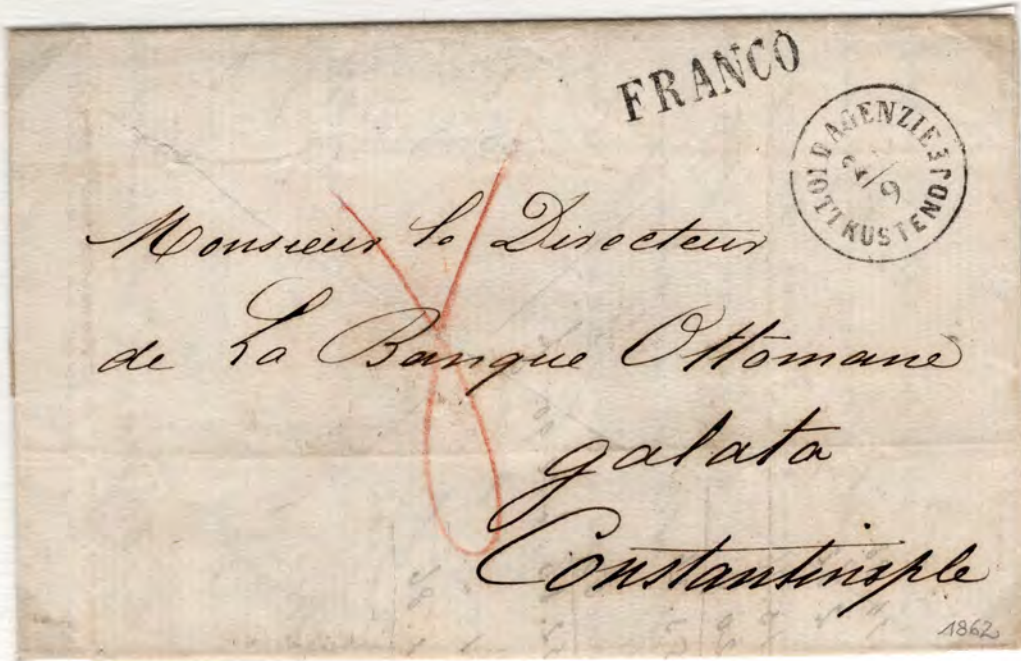 FRANCO
I R AGENZIE
2/9
LOTT KUSTENDJE
Monsieur le Directeur
de La Banque Ottomane
galata
Constantinople
1862